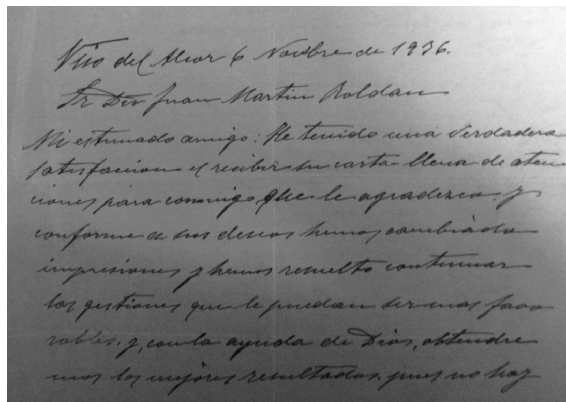 Viso del Alcor 6 Novbre de 1936.
Sr Dn Juan Martin Roldan
Mi estimado amigo: He tenido una verdadera
satisfacion el recibir su carta llena de aten
ciones para conmigo que le agradezco. y
conforme a sus deseos hemos cambiado
impresiones y hemos resuelto continuar
las gestiones que le puedan ser mas favo
rables. y, con la ayuda de Dios, obtendre
mos los mejores resultados. pues no hay